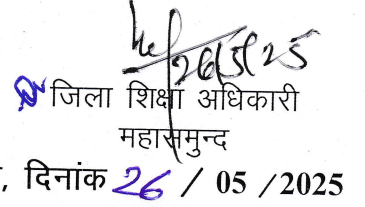 26/5/25
जिला शिक्षा अधिकारी
महासमुन्द
, दिनांक 26 / 05 /2025